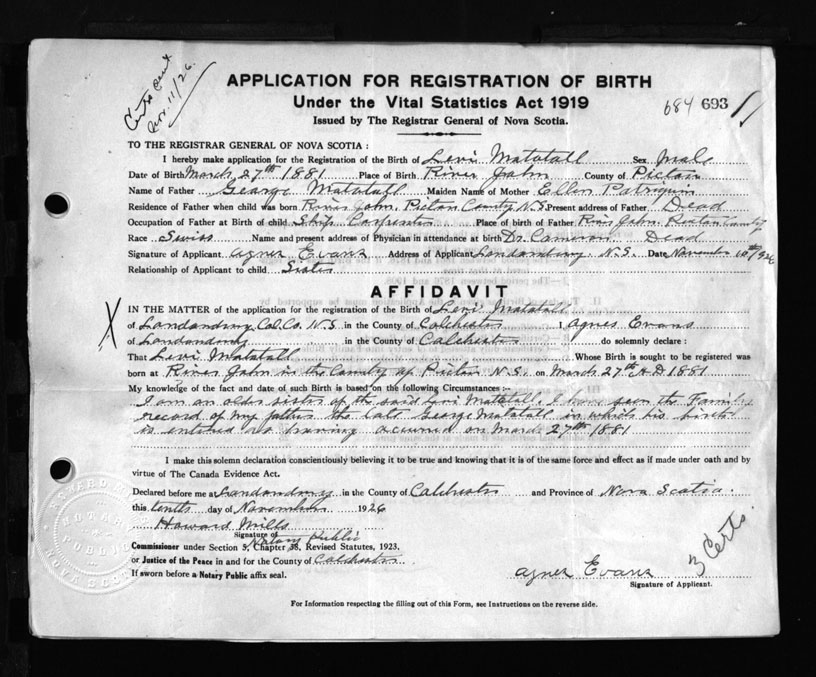 Certs sent
Nov. 11/26.
APPLICATION FOR REGISTRATION OF BIRTH
Under the Vital Statistics Act 1919
684 693
Issued by The Registrar General of Nova Scotia.
TO THE REGISTRAR GENERAL OF NOVA SCOTIA :
I hereby make application for the Registration of the Birth of Levi Matatall Sex Male
Date of Birth March 27th 1881 Place of Birth River John County of Pictou
Name of Father George Matatall Maiden Name of Mother Ellen Patriquin
Residence of Father when child was born River John, Pictou County N.S. Present address of Father Dead
Occupation of Father at Birth of child Ship Carpenter Place of birth of Father River John, Pictou County
Race Swiss Name and present address of Physician in attendance at birth Dr. Cameron Dead
Signature of Applicant Agnes Evans Address of Applicant Londonderry N.S. Date November 10th/926
Relationship of Applicant to child Sister
AFFIDAVIT
IN THE MATTER of the application for the registration of the Birth of Levi Matatall
of Londonderry Col. Co. N.S in the County of Colchester I Agnes Evans
of Londonderry in the County of Colchester do solemnly declare :
That Levi Matatall Whose Birth is sought to be registered was
born at River John in the County of Pictou N.S. on March 27th A.D 1881
My knowledge of the fact and date of such Birth is based on the following Circumstances :-
I am an older sister of the said Levi Matatall. I have seen the Family
record of my father the late George Matatall in which his birth
is entered as having occurred on March 27th 1881
I make this solemn declaration conscientiously believing it to be true and knowing that it is of the same force and effect as if made under oath and by
virtue of The Canada Evidence Act.
Declared before me at Londonderry in the County of Colchester and Province of Nova Scotia.
this tenth day of November 1926
Howard Mills
Signature of
Notary Public
Commissioner under Section 5, Chapter 38, Revised Statutes, 1923.
or Justice of the Peace in and for the County of Colchester
If sworn before a Notary Public affix seal.
Agnes Evans
3 Certs.
Signature of Applicant.
For Information respecting the filling out of this Form, see Instructions on the reverse side.
NOTARY
PUBLIC
NOVA SCOTIA